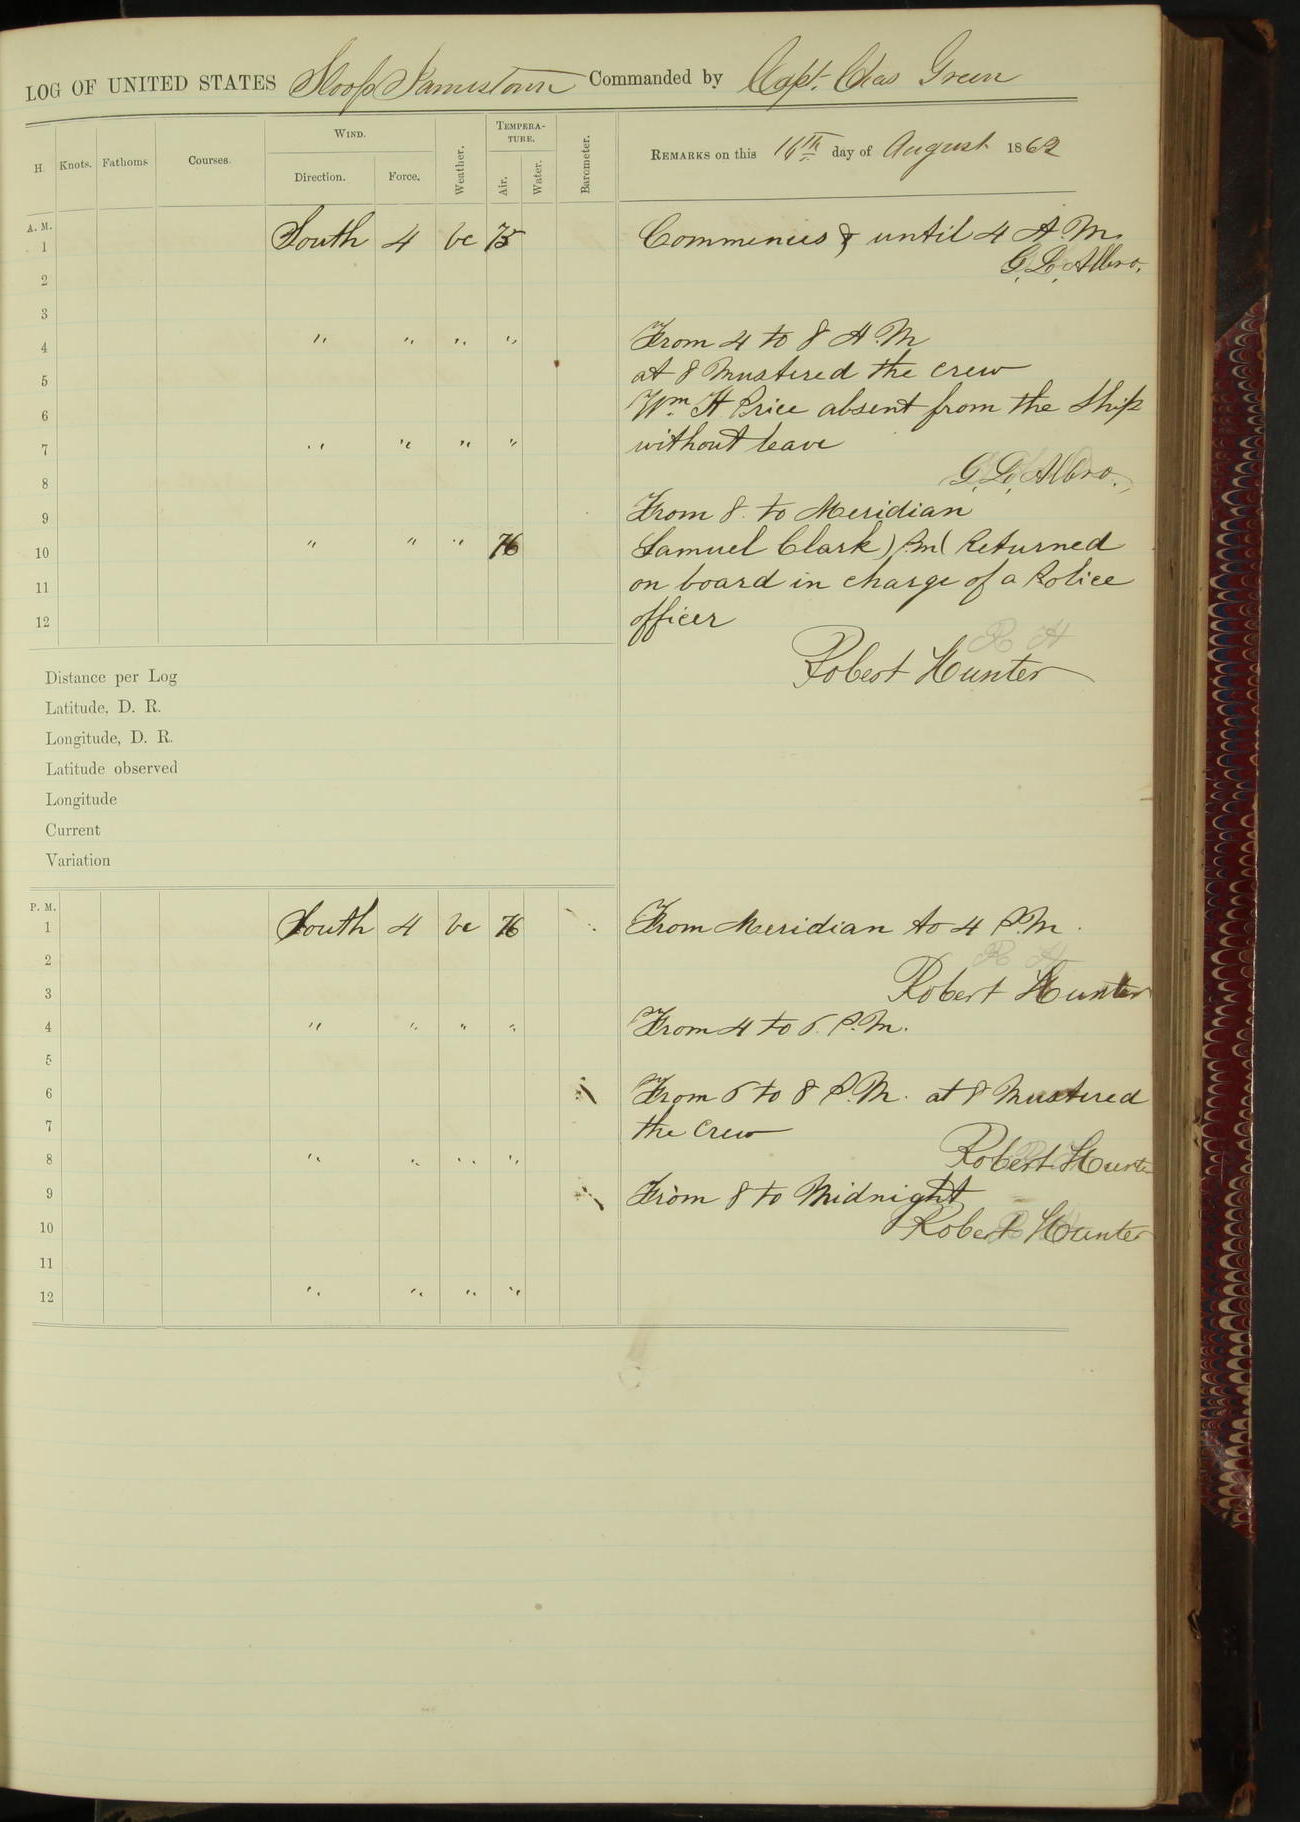 LOG OF UNITED STATES Sloop Jamestown Commanded by Capt. Chas Green
H. Knots. Fathoms Courses. WIND. Direction. Force. Weather. TEMPERATURE. Air. Water. Barometer. REMARKS on this 16th day of August 1862
A. M.
1 South 4 bc 75 Commences & until 4 A M.
G. L. Albro.
2
3
4 " " " " From 4 to 8 A.M
at 8 Mustered the crew
5
6 Wm H Price absent from the Ship
7 " " " " without leave
8 G. L. Albro.
9 From 8 to Meridian
10 " " " 76 Samuel Clark Returned
11 on board in charge of a Police
12 officer
R H
Robert Hunter
Distance per Log
Latitude, D. R.
Longitude, D. R.
Latitude observed
Longitude
Current
Variation
P. M.
1 South 4 bc 76 From Meridian to 4 P.M.
2 R H
3 Robert Hunter
4 " " " " From 4 to 6 P.M.
5
6 From 6 to 8 P.M. at 8 Mustered
7 the crew
8 " " " " Robert Hunter
9 From 8 to Midnight
10 Robert Hunter
11
12 " " " "